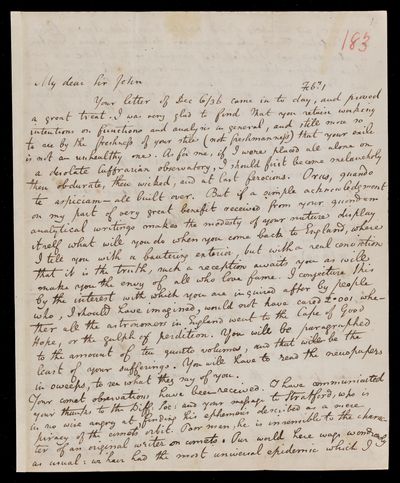 183
My dear Sir John
Feby 1
Your letter of Dec 6/36 came in to day, and proved
a great treat. I was very glad to find that you retain working
intentions on functions and analysis in general, and still more so
to see by the freshness of your style (not freshmanness) that your exile
is not an unhealthy one. As for me, if I were placed all alone on
a desolate Caffrarian observatory, I should first become melancholy
then obdurate, then wicked, and at last ferocious. Orcus, quando
te aspiciam – all built over. But if a simple acknowledgment
on my part of very great benefit received from your quondam
analytical writings makes the modesty of your nature display
itself what will you do when you come back to England, where
I tell you with a bantering exterior, but with a real conviction
that it is the truth, such a reception awaits you as will
make you the envy of all who love fame. I conjecture this
by the interest with which you are inquired after by people
who, I should have imagined, would not have cared £.001 whe-
ther all the astronomers in England went to the Cape of Good
Hope, or the gulph of perdition. You will be paragraphed
to the amount of ten quarto volumes, and that will be the
least of your sufferings. You will have to read the newspapers
in sweeps, to see what they say of you.
Your comet observations have been received. I have communicated
your thanks to the Diff. Soc: and your message to Stratford, who is
in no wise angry at finding his ephemeris described as a mere
piracy of the comets orbit. Poor man, he is insensible to the charac-
ter of an original writer on comets. Our world here wags wondrously
as usual: we have had the most universal epidemic which I